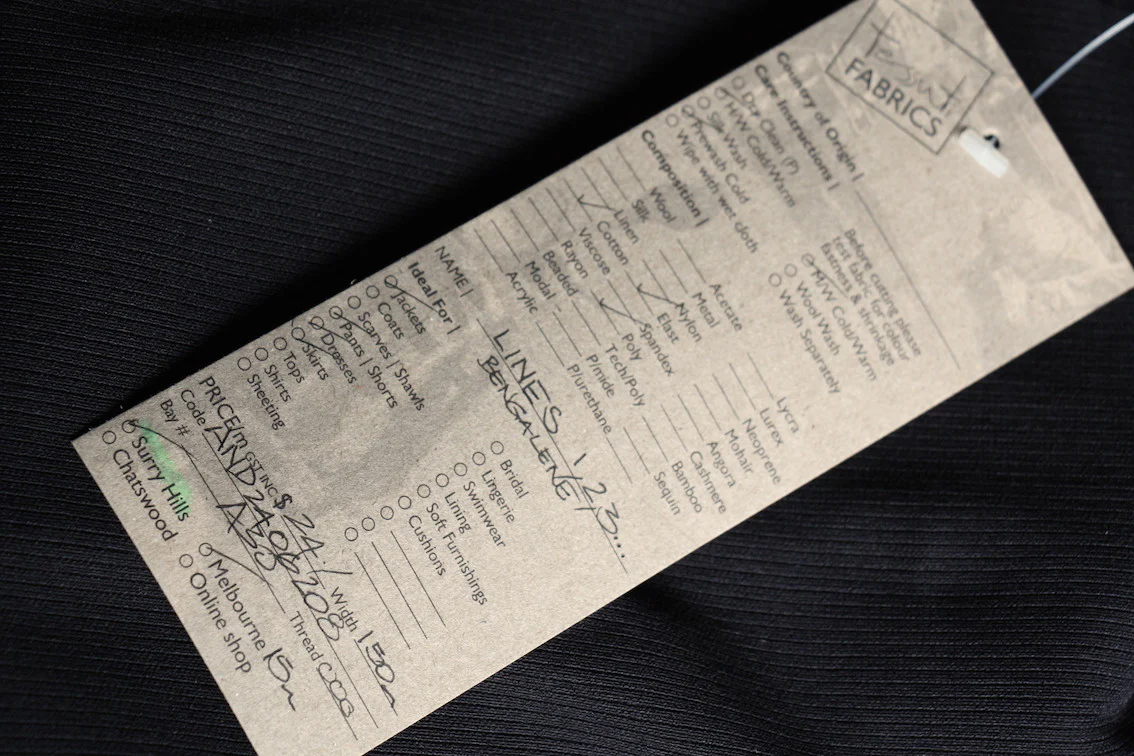 Tessuti
FABRICS
Country of Origin |
Care Instructions |
Dry Clean (P)
H/W Cold/Warm
Silk Wash
Prewash Cold
Wipe with wet cloth
Before cutting please
test fabric for colour
fastness & shrinkage
M/W Cold/Warm
Wool Wash
Wash Separately
Composition |
Wool
Silk
Linen
Cotton
Viscose
Rayon
Beaded
Modal
Acrylic
Acetate
Metal
Nylon
Elast
Spandex
Poly
Tech/Poly
P/mide
P/urethane
Lycra
Lurex
Neoprene
Mohair
Angora
Cashmere
Bamboo
Sequin
NAME | LINES 1,2,3...
BENGALENE
Ideal For |
Jackets
Coats
Scarves | Shawls
Pants | Shorts
Dresses
Skirts
Tops
Shirts
Sheeting
Bridal
Lingerie
Swimwear
Lining
Soft Furnishings
Cushions
PRICE/m GST INC $ 24.- / Width 150
Code AND2406208
Bay # A33 Thread
Surry Hills
Chatswood
Melbourne 15m
Online shop